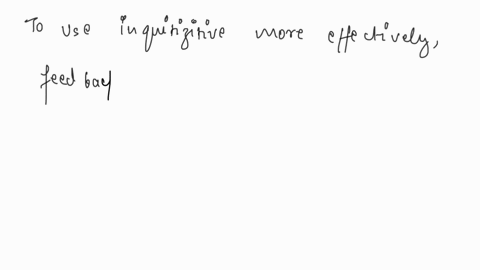 To use inquitizitive more effectively,
feed bac